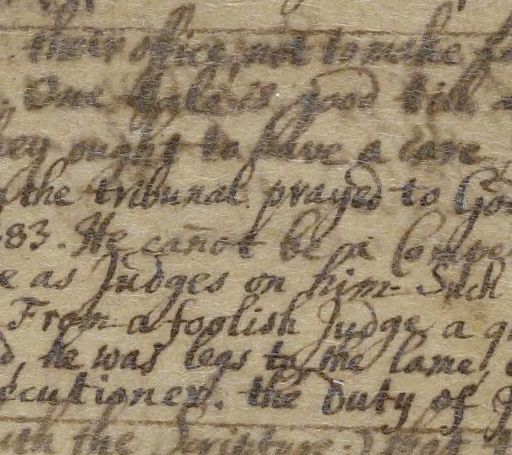 their office, not to make
One tale is good till
ought to have a care
the tribunal. prayed to God
83. He cañot be a
as Judges on him. Such
From a foolish Judge, a
he was legs to the lame,
ecutioner. the Duty of
the Scripture.